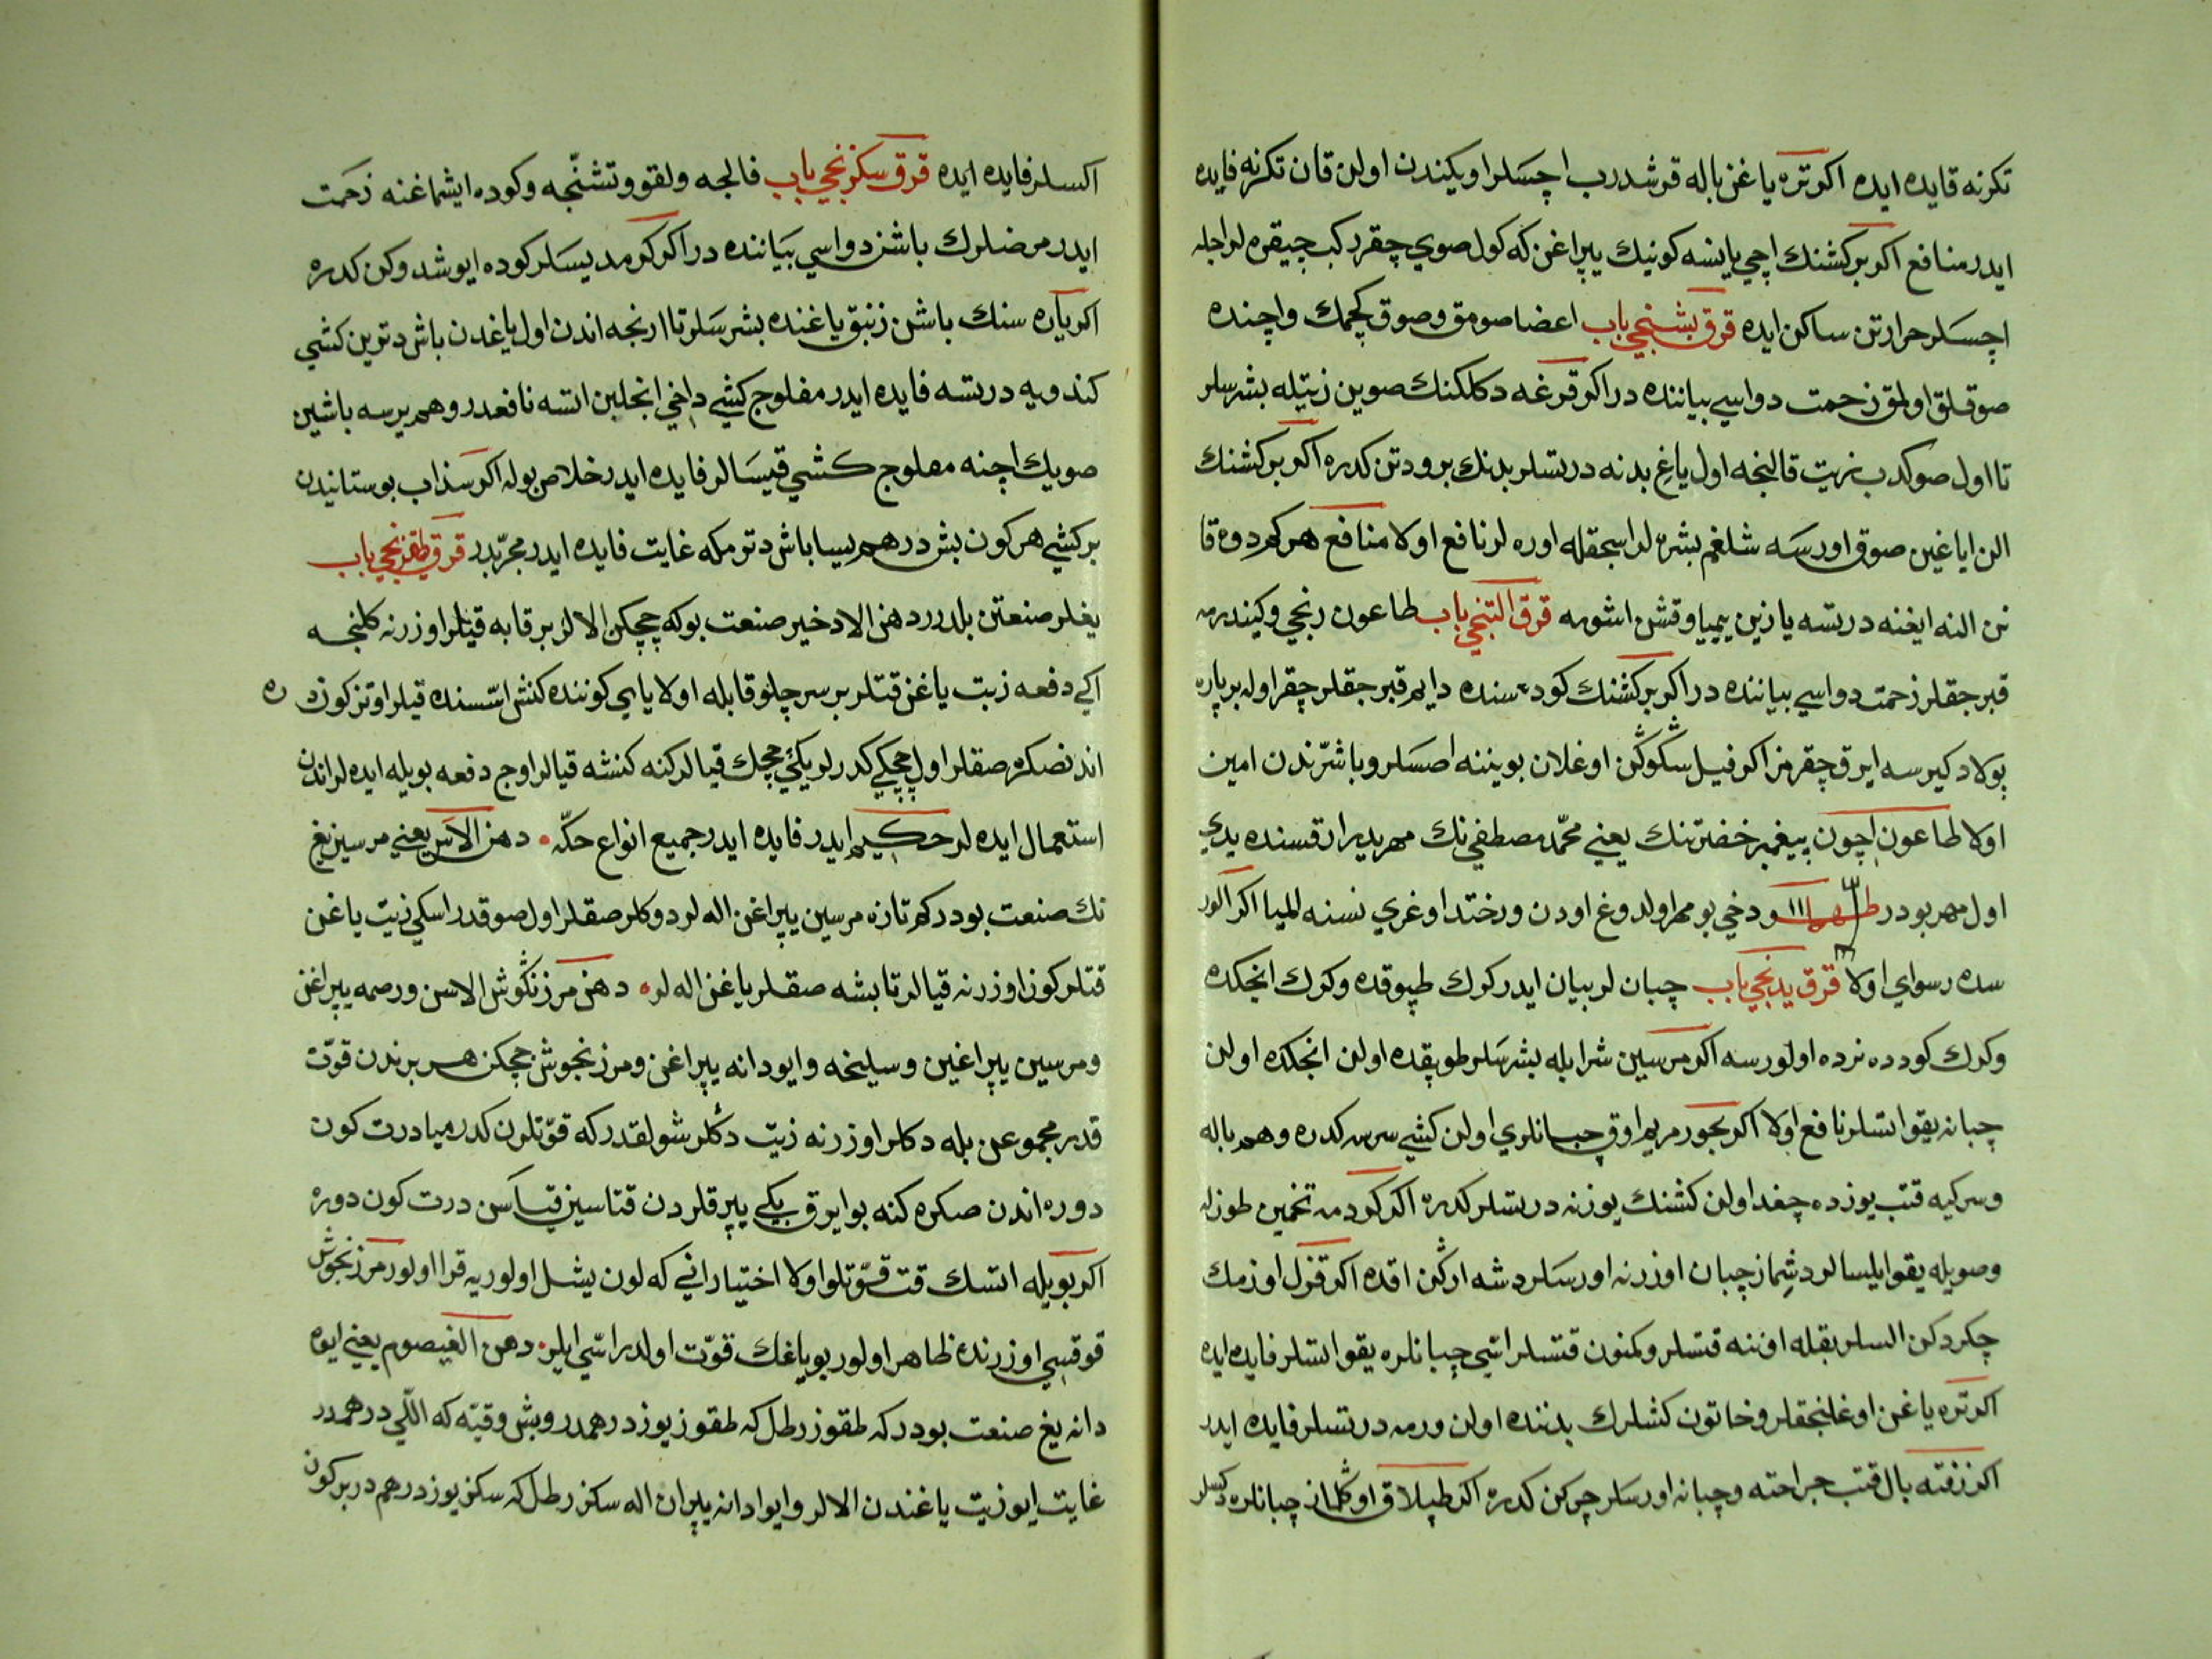 تكرنه فايده ايده اكر تره ياغن باله قرشدرب اچسلر اويكندن اولن قان تكرنه فايده
ايدر منافع اكر بر كشنك اچي يانسه كونيك يپراغن كه كول صويي چقرر كب چيقره لر اجله
اچسلر حرارتن ساكن ايده قرق بشنجي باب اعضا صومق و صوق كچمك واچنده
صوقلق اولمق زحمت دواسي بياننده در اكر قرغه دكلكنك صوين زيتله بشرسلر
تا اول صو كدب زيت قالنجه اول ياغ بدنه درتسلر بدنك برودتن كدره اكر بر كشنك
الن اياغين صوق اورسه شلغم بشره لر اسجقله اوره لر نافع اولا منافع هر كم دوه قا
نن النه ايغنه درتسه يازين يميا وقشن اشومه قرق التنجي باب طاعون رنجي وكيندرمه
قبرجقلر زحمت دواسي بياننده در اكر بر كشنك كودهسنده دايم قبرجقلر چقر اوله بر پاره
بولاد كيرسه ايرق چقرمز اكر فيل سكوكن اوغلان بويننه اصسلر وباشرندن امين
اولا طاعون اچون پيغمبر حضرتنك يعني محمد مصطفي نك مهريدير ارقسنده يدي
اول مهر بودر ودخي بو مهر اولدوغ اودن ورختدا وغري نسنه الميا اكر الور
سه رسواي اولا قرق يدنجي باب چبان لر بيان ايدر كرك طپوقده وكرك انجكده
وكرك كودده نرده اولورسه اكر مرسين شرابله بشرسلر طوپقده اولن انجكده اولن
چبانه يقو اتسلر نافع اولا اكر بخور مريم اوق چبانلري اولن كشي سرسه كدره وهم باله
وسركيه قتب يوزده چغدا ولن كشنك يوزنه درتسلر كدره اكر كودمه تخمين طوزله
وصويله يقو ايليسالر دشماز چبان اوزرنه اورسلر دشه اركن اقده اكر قزل اوزمك
چكردكن السلر بقله اوننه قتسلر وكمنون قتسلر اسي چبانلره يقو اتسلر فايده ايده
اكر تره ياغن اوغلنجقلر وخاتون كشلرك بدننده اولن ورمه درتسلر فايده ايدر
اكر زفته بال قتب جراحته وچبانه اورسلر چركن كدره اكر طپلاق اوتلمان چبانلره دكسلر
اكسلر فايده ايده قرق سكزنجي باب فالجه ولقوو تشنجه وكوده ايشماغنه زحمت
ايدر مرضلرك باشن دواسي بياننده در اكر كرمد يسلر كوده ايوشدوكن كدره
اكر ياره سنك باشن زنبق ياغنده بشرسلر تا ارنجه اندن اول ياغدن باش دترين كشي
كندويه درتسه فايده ايدر مفلوج كشي داخي انجلين اتسه نافعدر وهم يرسه باشين
صويك اچنه مفلوج كشي قيسالر فايده ايدر خلاص بوله اكر سذاب بوستانيدن
بر كشي هر كون بش درهم يسا باش دترمكه غايت فايده ايدر مجربدر قرق طقزنجي باب
يغلر صنعتن بلدرر دهن الاذخير صنعت بو كه چچكن الالر بر قابه قيلر اوزرنه كلنجه
اكي دفعه زيت ياغن قتلر بر سرچلو قابله اولا ياي كوننده كنش استسنده قيلر اوتز كون ده
اندنصكره صقلر اول چچكي كدرلر يكي چچك قيالر كنه كنشه قيالر اوج دفعه بويله ايده لر اندن
استعمال ايده لر حكيم ايدر فايده ايدر جميع انواع حكه دهن الاس يعني مرسين يغ
نك صنعت بودر كم تازه مرسين يپراغن اله لر دوكلر صقلر اول صوقدر اسكي زيت ياغن
قتلر كون اوزرنه قيالر تا بشه صقلر ياغن اله لر دهن مرزنكوش الاسن ورصمه يپراغن
ومرسين يپراغين وسليخه وايودانه يپراغن ومرزنجوش چچكن هر برندن قوت
قدر مجموعن بله دكلر اوزرنه زيت دكلر شولقدر كه قوتلون كدرميا درت كون
دوره اندن صكره كنه بو ايرق يكي يپرقلردن قتاسيز قياسن درت كون دوره
اكر بويله اتسك قت قوتلو اولا اختيار اني كه لون يشل اولور يه قرا اولور مرزنجوش
قوقسي اوزرنده ظاهر اولور بو ياغك قوت اولدر اسي ايلر دهن القيصوم يعني ايوه
دانه يغ صنعت بودر كه طقوز رطل كه طقوز يوز درهمدر وبش وقيه كه اللي درهمدر
غايت ايو زيت ياغندن الالر وايوا دانه يپران اله سكز رطل كه سكز يوز درهم در بر كون